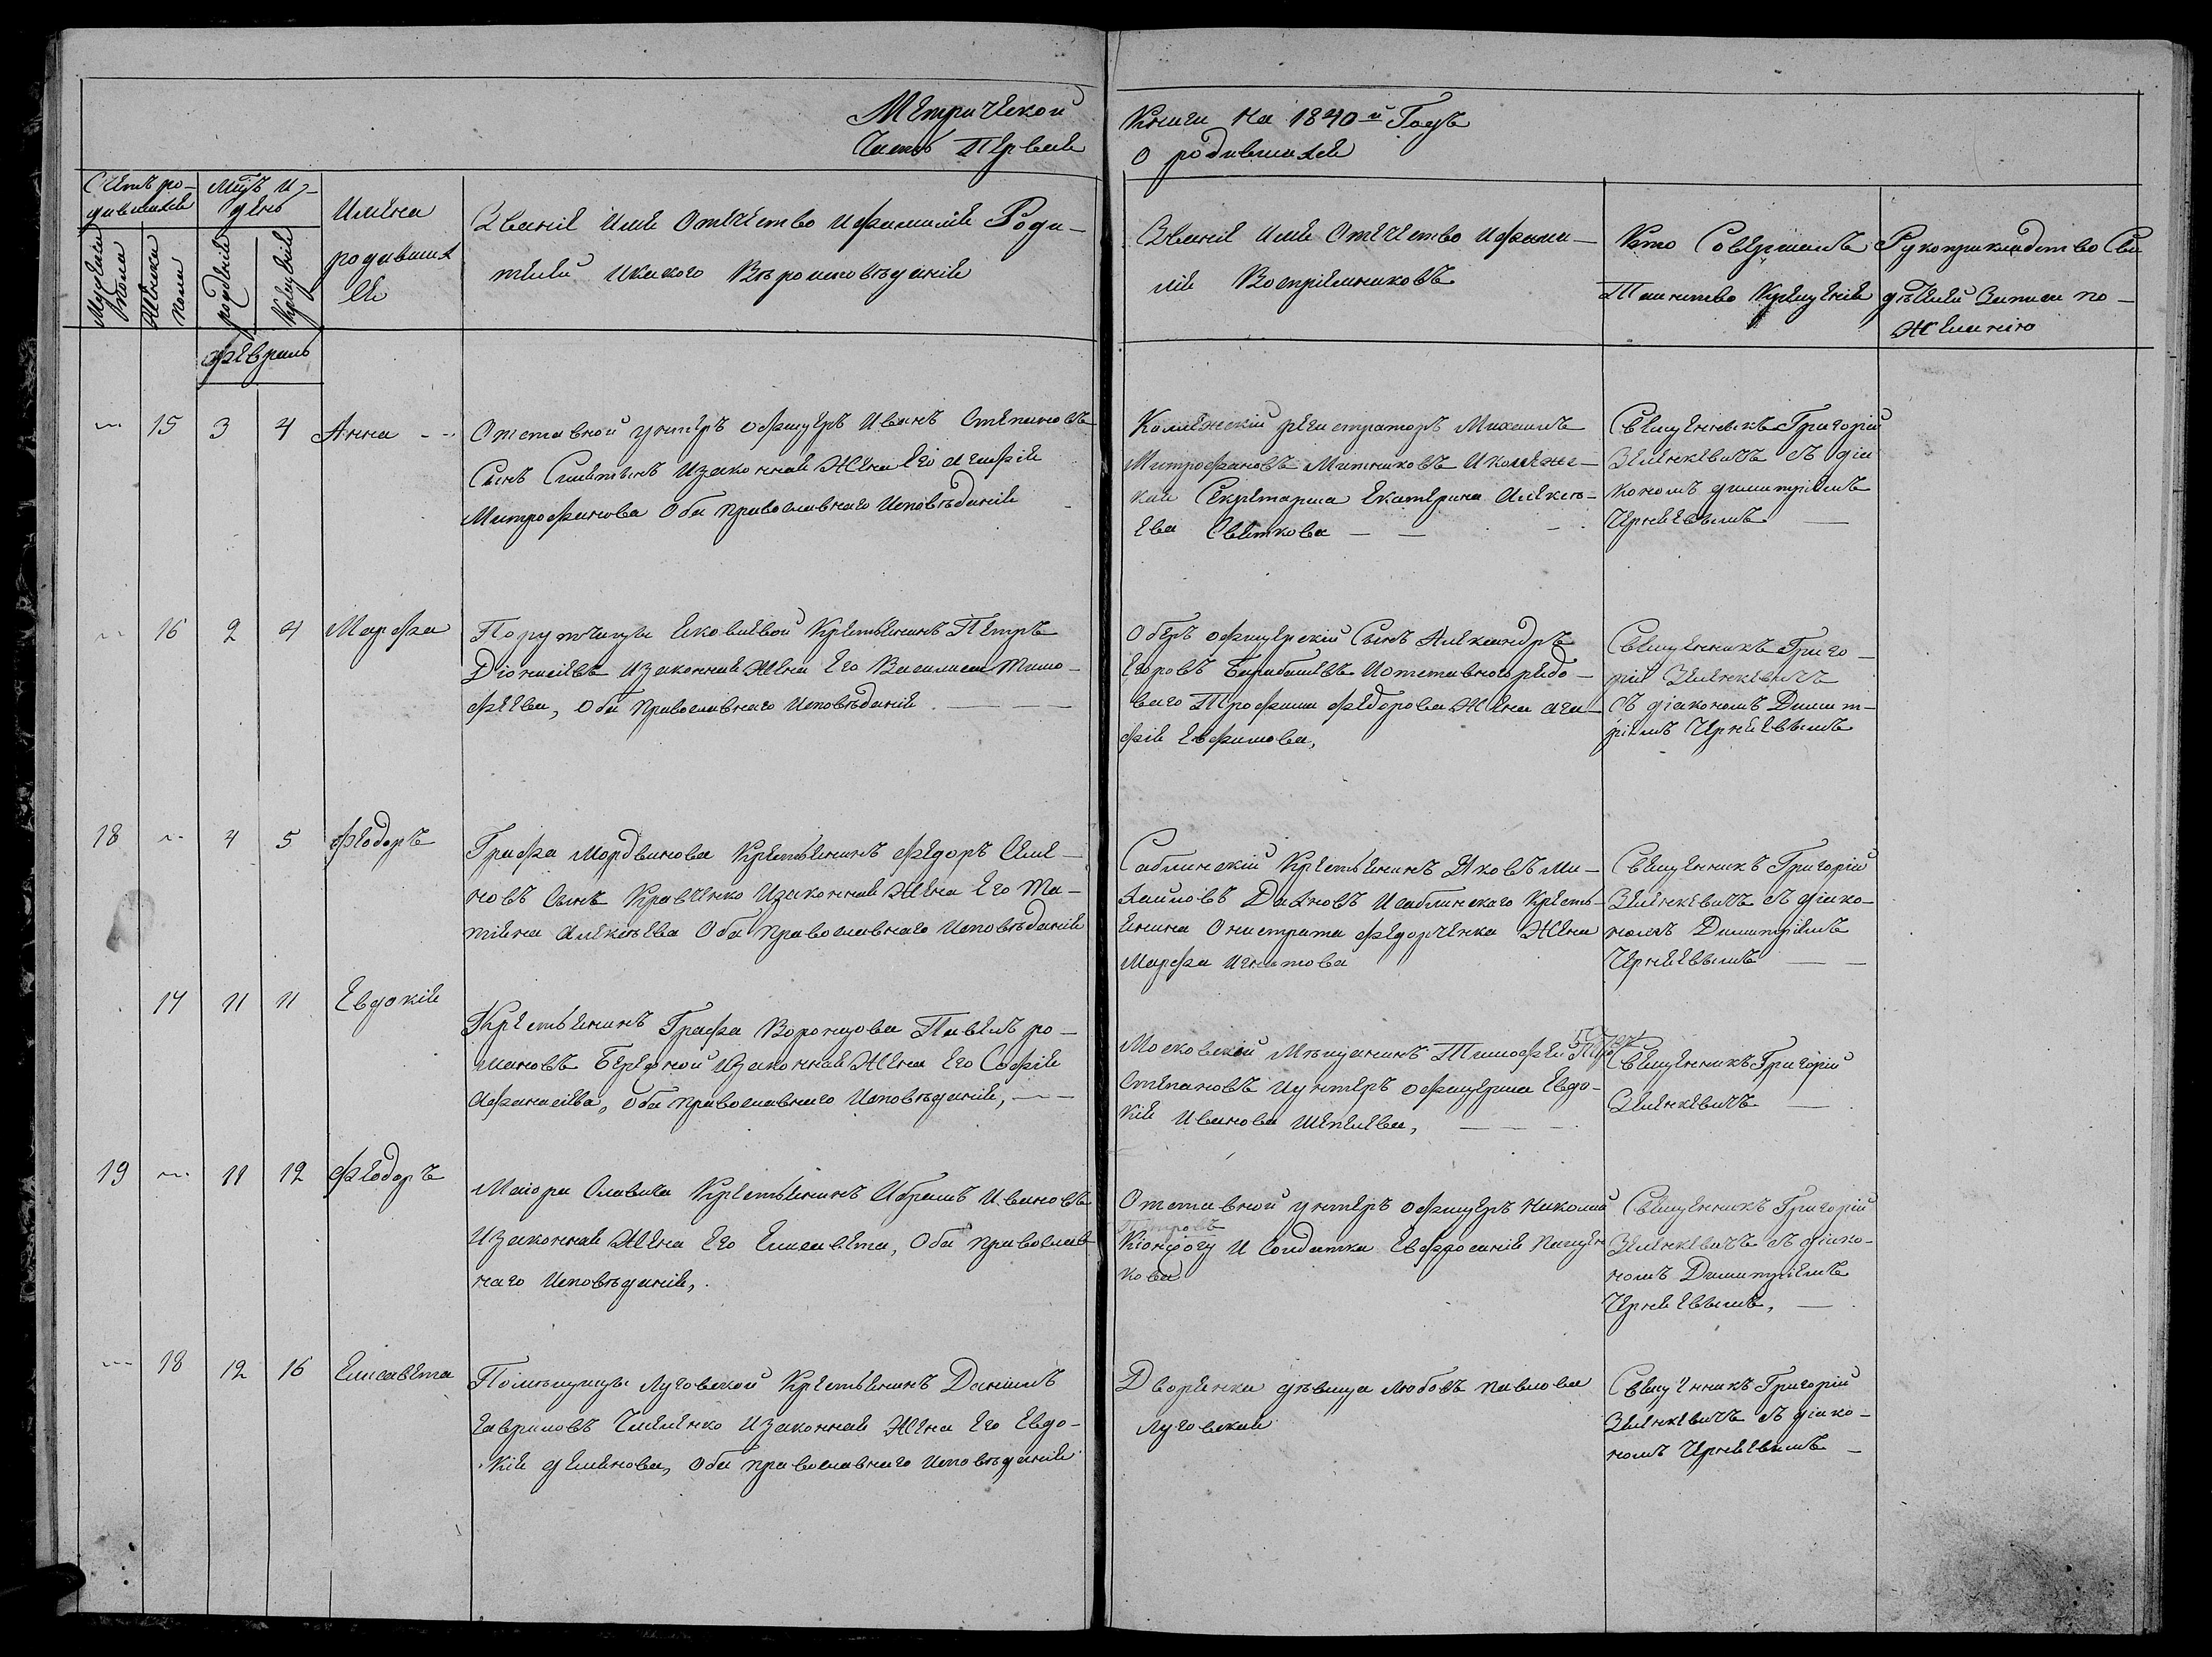 Метрической
Часть Первая
Книги на 1840й Годъ
о родившихся
Счетъ ро-
дившихся
Мужеска
пола
Женска
пола
Мцъ и
день
рожденія
крещенія
Имена
родивших
ся
Званіе Имя Отечество и Фамилія Роди-
телей и какого Вѣроисповѣданія
Званіе Имя Отечество и Фами-
лія Воспріемниковъ
Кто Совершалъ
Таинство Крещенія
Рукоприкладство Сви
дѣтелей Записи по-
Желанію
Февраль
15 3 4 Анна
Отставной унтеръ офицеръ Иванъ Степановъ
Сынъ изаконная Жена Его Агафія
Митрофанова Оба православнаго Исповѣданія
Колежскій регистраторъ Михаилъ
Митрофановъ Митниковъ и колежс-
кая Секретарша Екатерина Алексѣ-
ева Светкова
Священникъ Григорій
Зеленкевичъ съ діа
кономъ димитріемъ
Черняевымъ
16 2 4 Марфа
Порутчицы Яковлевой Крестьянинъ Петръ
Діонисіевъ изаконная Жена Его Василиса Тимо-
феева, Оба Православнаго Исповѣданія
Оберъ офицерскій Сынъ Александръ
Егоровъ Барабашевъ и отставного рядо-
ваго Трофима Федорова Жена ага-
фія Евфимова,
Священникъ Григо-
рій Зеленкевичъ
Съ діакономъ Димит-
ріемъ Черняевымъ
18 4 5 Феодоръ
Графа Мордвинова Крестьянинъ Федоръ Семе-
новъ Сынъ Кравченко изаконная Жена Его Та-
тіяна Алексѣева Оба православнаго Исповѣданія
Саблинскій Крестьянинъ Яковъ Ми-
хаиловъ Дахновъ и саблинскаго Кресть-
янина Онистрата Федорченка Жена
Марфа Игнатова
Священникъ Григорій
Зеленкевичъ съ діако-
номъ Димитріемъ
Черняевымъ
17 11 11 Евдокія
Крестьянинъ Графа Воронцова Павелъ ро-
мановъ Бережной изаконная Жена Его Софія
Афанасіева, оба православнаго Исповѣданія,
Московской Мѣщанинъ Тимофей
Степановъ иунтеръ офицерша Евдо-
кія Иванова Шепелева,
Священникъ Григорій
Зеленкевичъ
19 11 12 Феодоръ
Маіора Славича Крестьянинъ Абрамъ Ивановъ
изаконная Жена Его Елисавета, Оба православ-
наго Исповѣданія,
Отставной унтеръ офицеръ Николай
Петровъ
и солдатка Евфросинія
кова
Священникъ Григорій
Зеленкевичъ съ діако-
номъ Димитріемъ
Черняевымъ,
18 12 16 Елисавета
Помѣщицы Луговской Крестьянинъ Даніилъ
Гавриловъ изаконная Жена Его Евдо-
кія демянова, оба православнаго Исповѣданія
Дворянка дѣвица Любовь павлова
Луговская
Священникъ Григорій
Зеленкевичъ съ діако-
номъ Черняевымъ